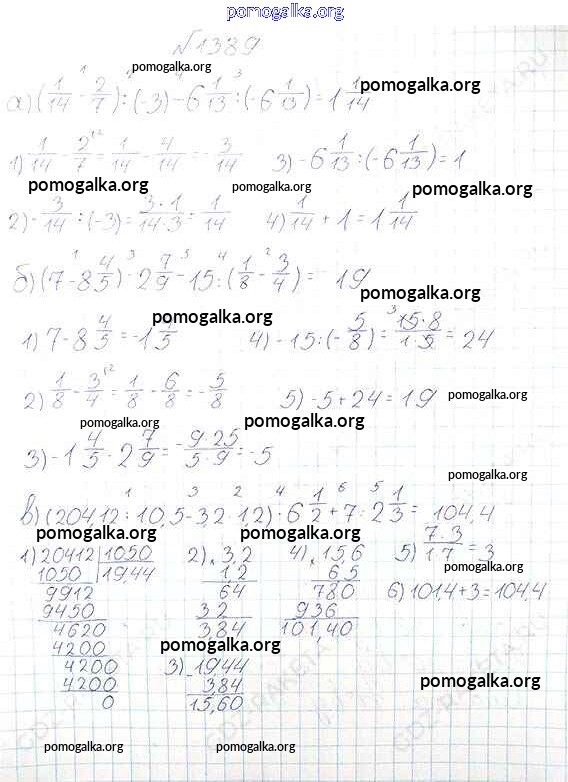 pomogalka.org
№1389
pomogalka.org
а) (1/14 - 2/7) : (-3) - 6 1/13 : (-6 1/13) = 1 1/14
pomogalka.org
1) 1/14 - 2/7 = 1/14 - 4/14 = -3/14    3) -6 1/13 : (-6 1/13) = 1
pomogalka.org pomogalka.org pomogalka.org
2) -3/14 : (-3) = 3·1/14·3 = 1/14    4) 1/14 + 1 = 1 1/14
б) (7 - 8 4/5) · 2 7/9 - 15 : (1/8 - 3/4) = 19
pomogalka.org
pomogalka.org
1) 7 - 8 4/5 = -1 4/5    4) -15 : (-5/8) = 15·8/1·5 = 24
2) 1/8 - 3/4 = 1/8 - 6/8 = -5/8    5) -5 + 24 = 19
pomogalka.org
pomogalka.org pomogalka.org
3) -1 4/5 · 2 7/9 = -9·25/5·9 = -5
pomogalka.org
в) (204,12 : 10,5 - 3,2 · 1,2) · 6 1/2 + 7 : 2 1/3 = 104,4
pomogalka.org pomogalka.org
1) 20412 | 1050    2) × 3,2    4) × 15,6    5) 7·3/1·7 = 3
1050 | 19,44    1,2    6,5
pomogalka.org
9912    64    780    6) 101,4 + 3 = 104,4
9450    32    936
4620    3,84    101,40
4200
pomogalka.org
4200    3) - 19,44
4200    3,84
pomogalka.org
0    15,60
pomogalka.org pomogalka.org pomogalka.org